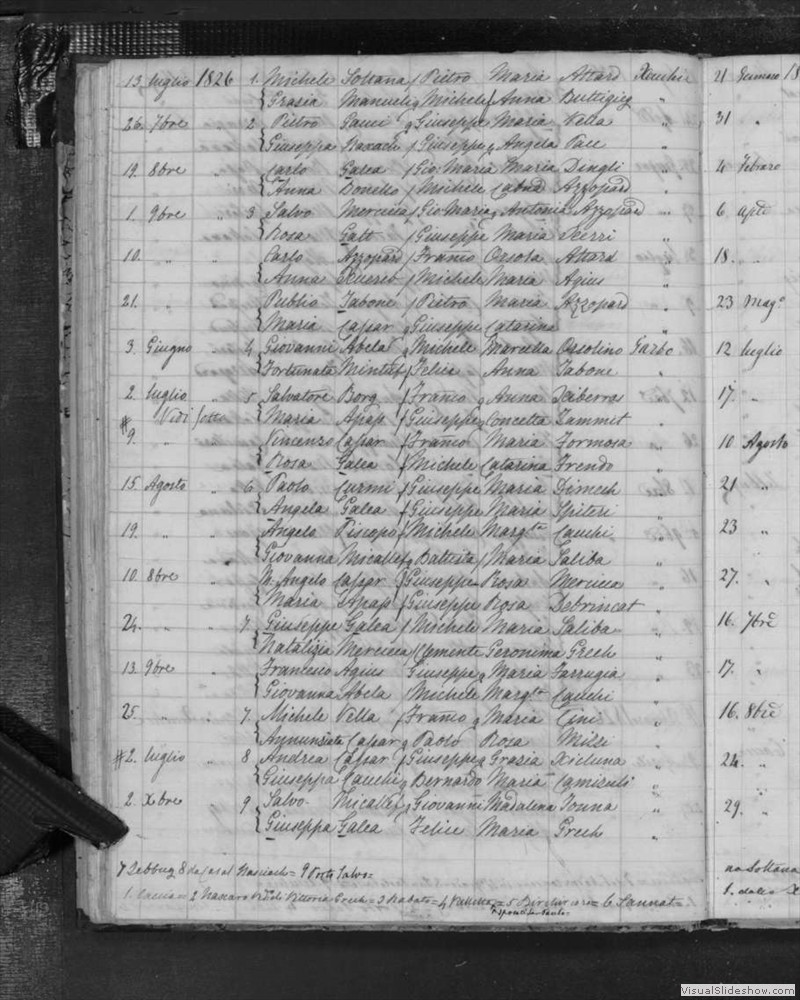 13. luglio 1826 1. Michele Soltana / Pietro Maria Attard Xeuchi 21 Gennaro 18
Grasia Manueli Michele Anna Buttigieg "
26. 7bre " 2 Pietro Gauci Giuseppe Maria Vella " 31 "
Giuseppa Giuseppe Angela Pace "
19. 8bre " Carlo Galea / Gio Maria Maria Dingli " 4 Febraro
Anna Bonello / Michele Azzopard "
1. 9bre " 3 Salvo Mercieca / Gio Maria Antonia Azzopard " 6 aple
Rosa Galt / Giuseppe Maria Xerri "
10. " " Carlo Azzopard / Franco Orsola Attard " 18. "
Anna Xuereb / Michele Maria Agius "
21. " " Publio Tabone / Pietro Maria Azzopard " 23 Mago
Maria Caspar Giuseppe Catarina "
3. Giugno " 4 Giovanni Abela Michele Marcella Orsolino Garbo 12 luglio
Fortunata Mintuf / Felice Anna Tabone "
2. luglio " 5 Salvatore Borg / Franco Anna Xiberras " 17. "
# Vedi sotto Maria Apap / Giuseppe Concetta Zammit "
9. " Vincenzo Caspar / Franco Maria Formosa " 10 Agosto
Rosa Galea / Michele Catarina Frendo "
15. Agosto " 6 Paolo Curmi / Giuseppe Maria Dimech " 21 "
Angela Galea / Giuseppe Maria Spiteri "
19. " " Angelo Piscopo / Michele Margta Cauchi " 23 "
Giovanna Micallef Battista / Maria Saliba "
10. 8bre " M. Angelo Caspar / Giuseppe Rosa Mercieca " 27. "
Maria Apap / Giuseppe Rosa Debrincat "
24. " " 7. Giuseppe Galea / Michele Maria Saliba " 16. 7bre
Natalizia Mercieca / Clemente Geronima Grech "
13. 9bre " Francesco Agius Giuseppe Maria Farrugia " 17. "
Giovanna Abela / Michele Margta Cauchi "
25. " " 7. Michele Vella / Franco Maria Cini " 16. 8bre
Annunziata Caspar Paolo Rosa Mifsi "
#2. luglio " 8 Andrea Caspar / Giuseppe Grazia Xicluna " 24. "
Giuseppa Cauchi Bernardo Maria Camisuli "
2. Xbre 9 Salvo Micallef Giovanni Madalena Zouna " 29. "
Giuseppa Galea Felice Maria Grech "
7 Zebbug 8 da Casal = 9 Porto Salvo = no Soltana
1. Caccia = 2 Nasciaro Vittoria Grech = 3 Rabato = 4 = 5 = 6 Sannat = 1. della X
VisualSlideshow.com